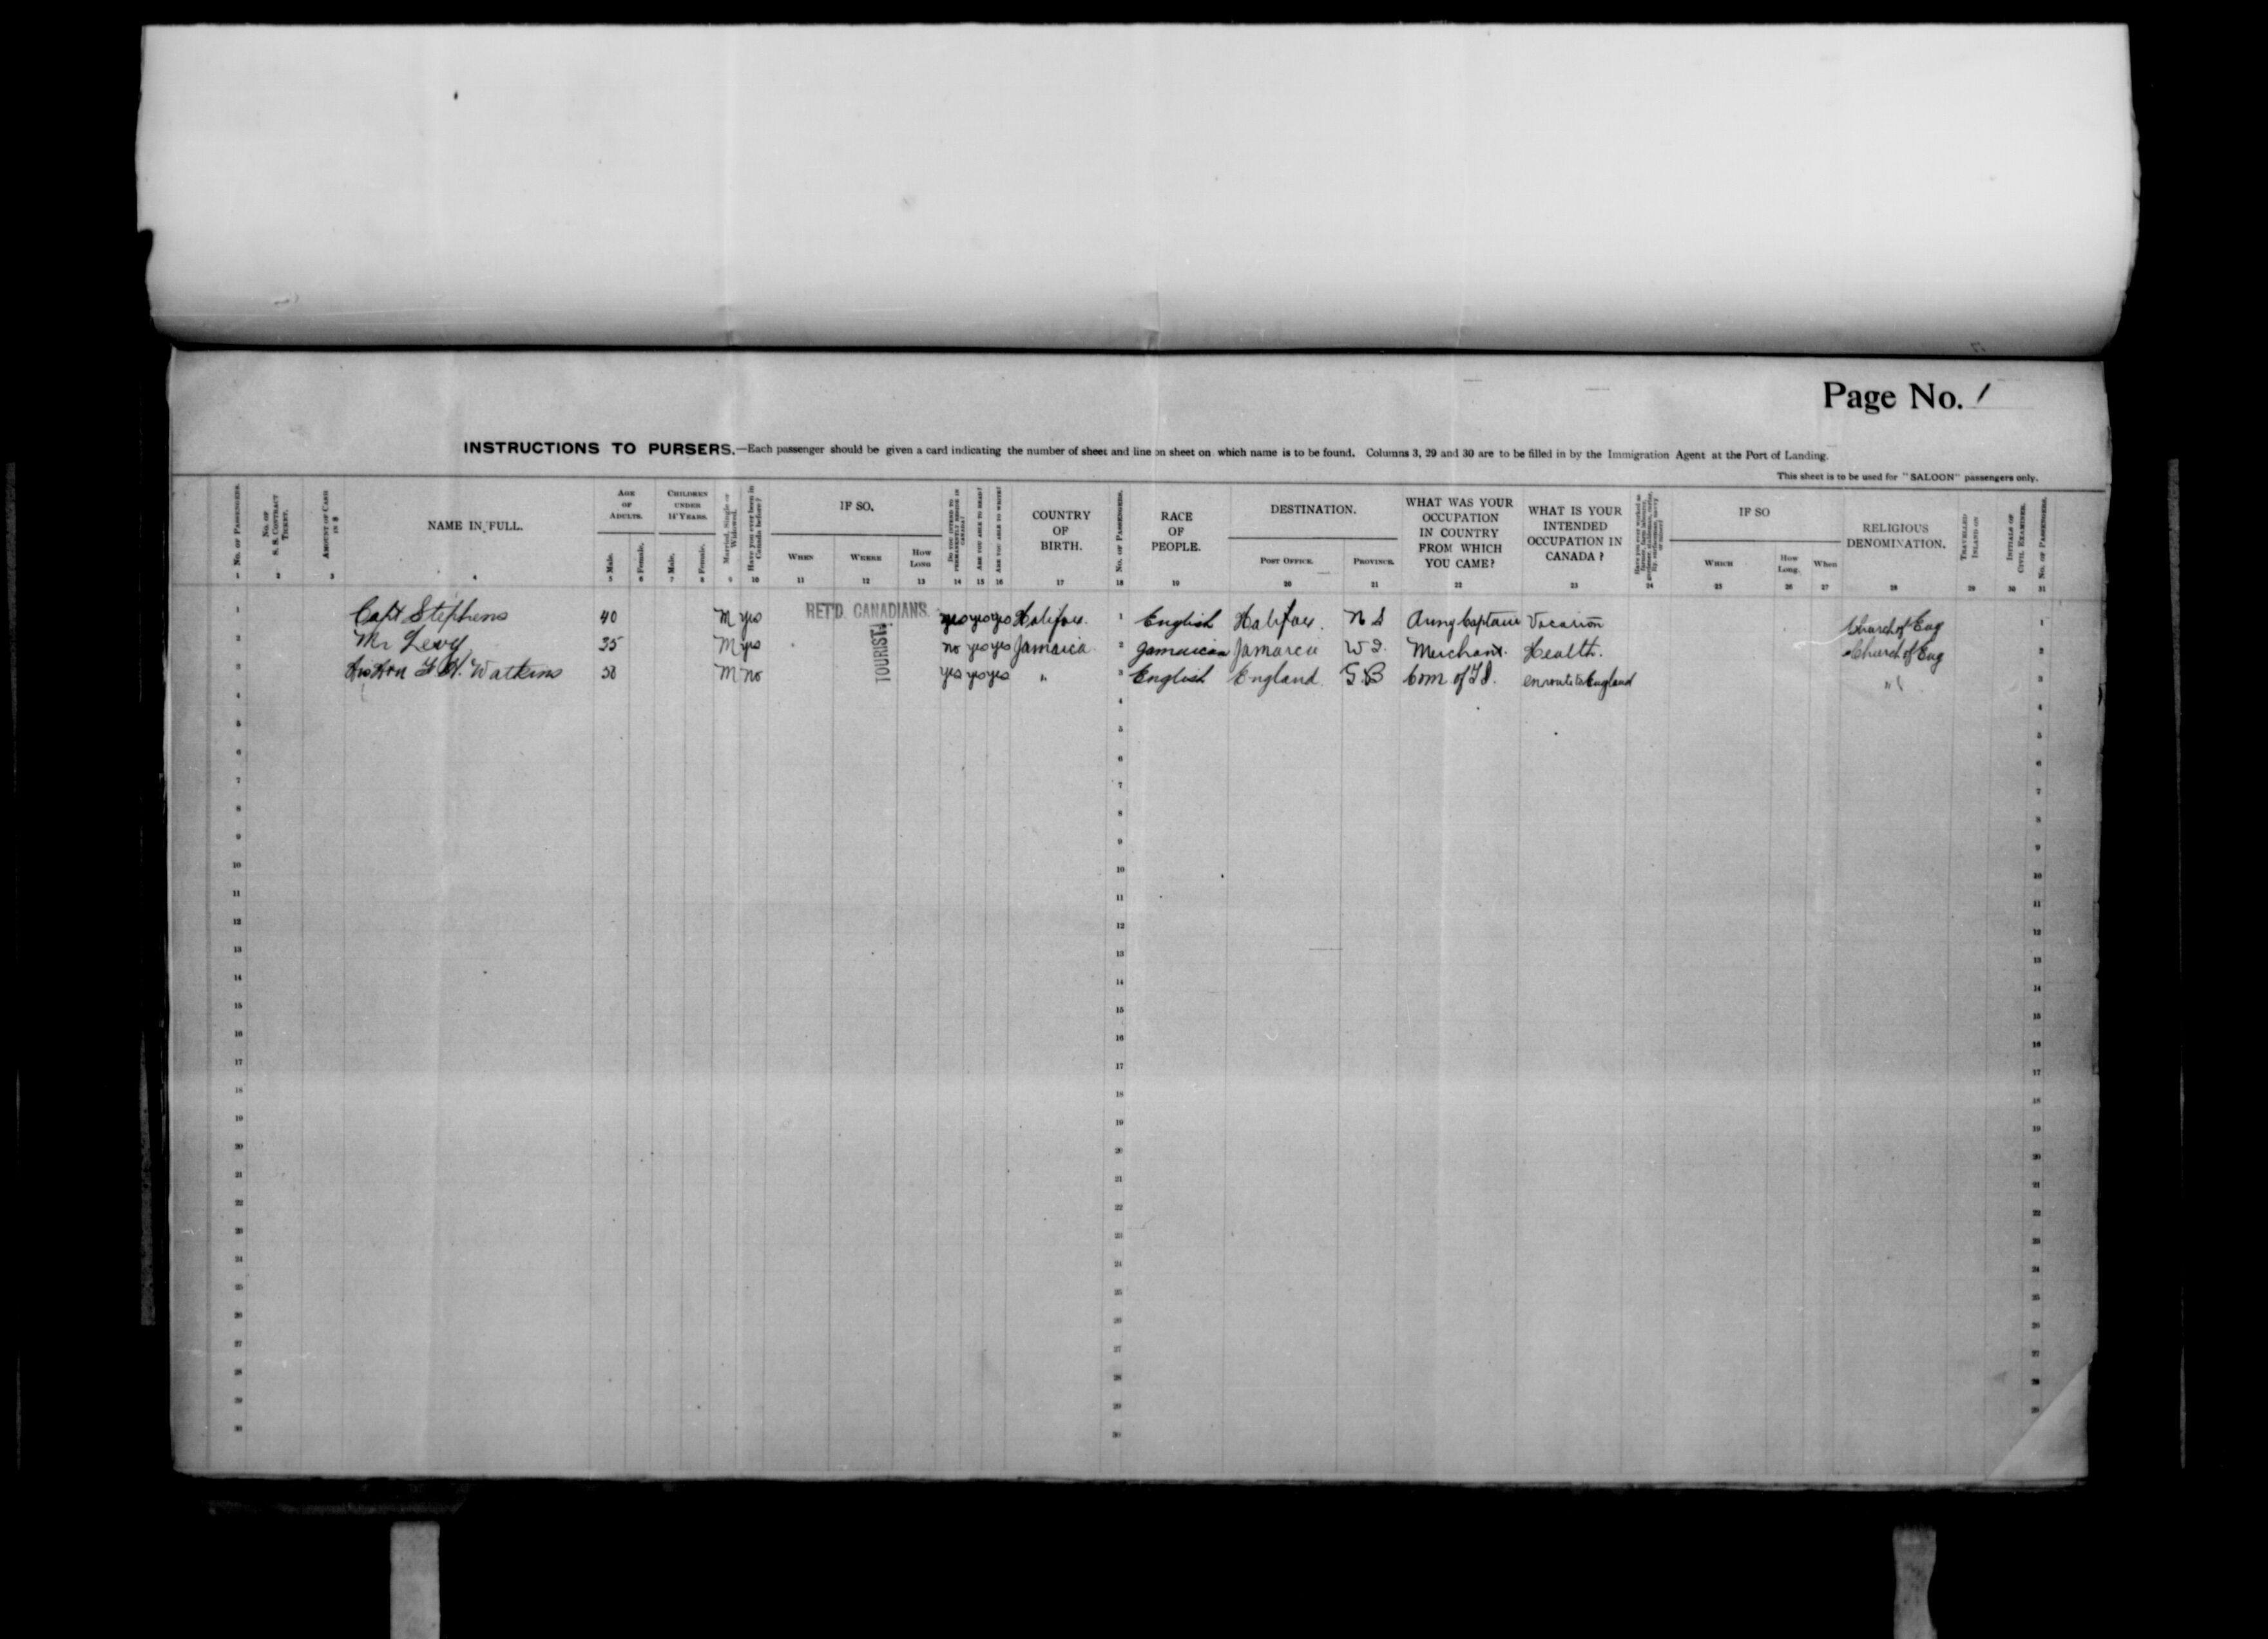 Page No. 1
INSTRUCTIONS TO PURSERS.—Each passenger should be given a card indicating the number of sheet and line on sheet on which name is to be found. Columns 3, 29 and 30 are to be filled in by the Immigration Agent at the Port of Landing.
This sheet is to be used for "SALOON" passengers only.
No. of Passengers.
No. of S. S. Contract Ticket.
Amount of Cash in $
NAME IN FULL.
Age of Adults.
Male.
Female.
Children under 14 Years.
Male.
Female.
Married, Single or Widowed.
Have you ever been in Canada before?
IF SO.
When
Where
How Long
Do you intend to permanently reside in Canada?
Are you able to read?
Are you able to write?
COUNTRY OF BIRTH.
No. of Passengers.
RACE OF PEOPLE.
DESTINATION.
Post Office.
Province.
WHAT WAS YOUR OCCUPATION IN COUNTRY FROM WHICH YOU CAME?
WHAT IS YOUR INTENDED OCCUPATION IN CANADA?
IF SO
Which
How Long.
When
RELIGIOUS DENOMINATION.
Travelled Inland on
Initials of Civil Examiner.
No. of Passengers.
1 2 3 4 5 6 7 8 9 10 11 12 13 14 15 16 17 18 19 20 21 22 23 24 25 26 27 28 29 30 31
1 Capt Stephens 40 M yes RET'D. CANADIANS. yes yes yes Halifax. 1 English Halifax. N S Army Captain Vacation Church of Eng 1
2 Mr Levy 35 M yes no yes yes Jamaica 2 Jamaican Jamaica W I. Merchant. Health. Church of Eng 2
TOURIST
3 His Hon F H. Watkins 58 M no yes yes yes " 3 English England. G B Com of T I. en route to England " 3
4 4 4
5 5 5
6 6 6
7 7 7
8 8 8
9 9 9
10 10 10
11 11 11
12 12 12
13 13 13
14 14 14
15 15 15
16 16 16
17 17 17
18 18 18
19 19 19
20 20 20
21 21 21
22 22 22
23 23 23
24 24 24
25 25 25
26 26 26
27 27 27
28 28 28
29 29 29
30 30